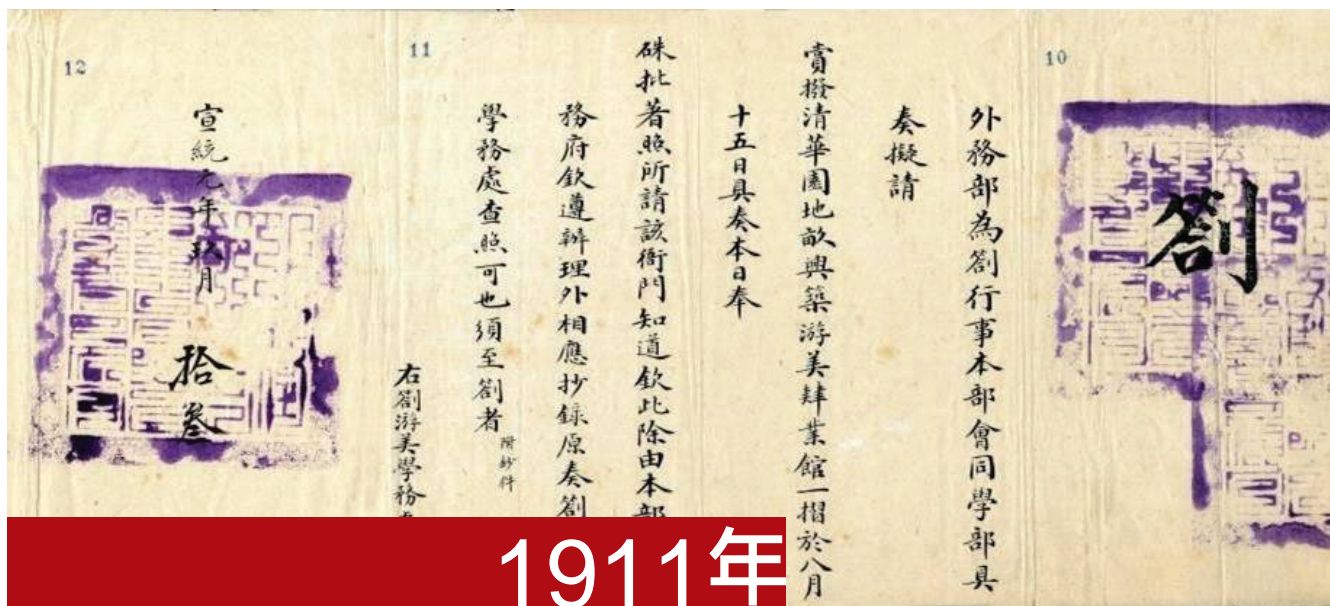 10
劄
外務部為劄行事本部會同學部具
奏擬請
賞撥清華園地畝興築游美肄業館一摺於八月
十五日具奏本日奉
硃批著照所請該衙門知道欽此除由本部
務府欽遵辦理外相應抄錄原奏劄
學務處查照可也須至劄者
附鈔件
11
右劄游美學務
12
宣統元年玖月
拾叁
1911年